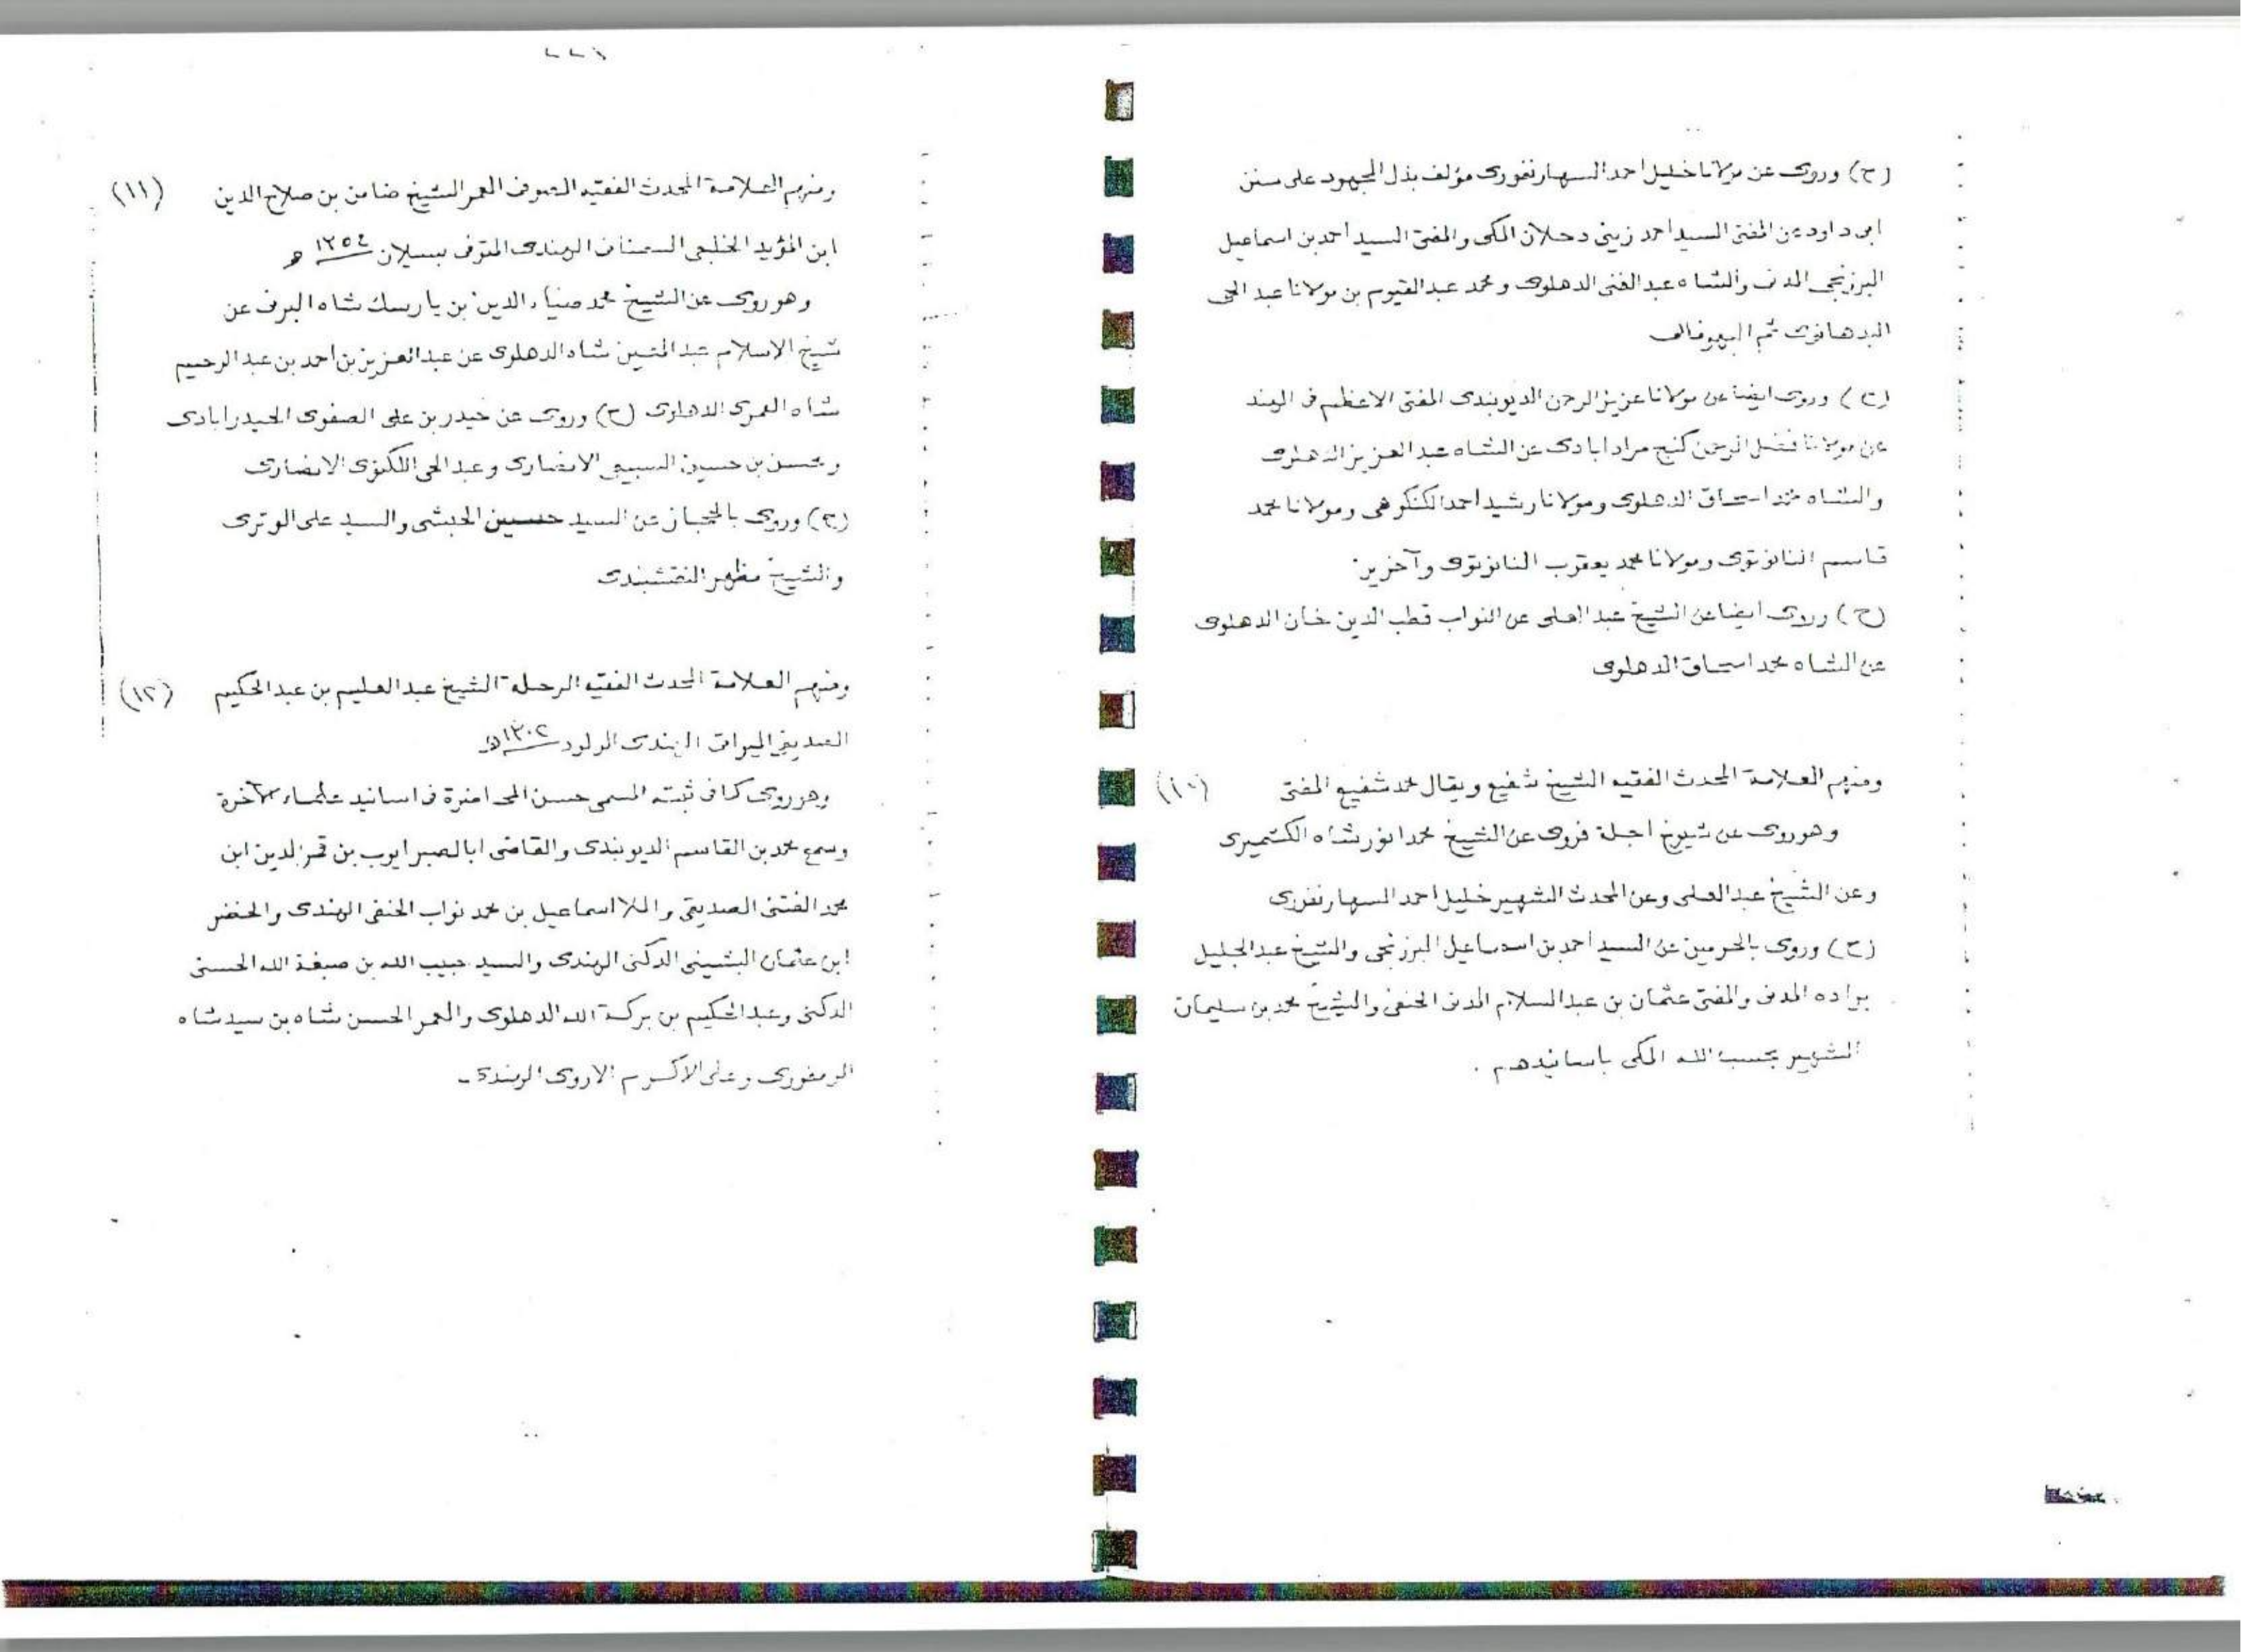 (ح) وروى عن مولانا خليل احمد السهارنفورى مؤلف بذل المجهود على سنن
ابى داود عن المفتى السيد احمد زينى دحلان المكى والمفتى السيد احمد بن اسماعيل
البرزنجى المدنى والشاه عبد الغنى الدهلوى ومحمد عبد القيوم بن مولانا عبد الحى
البدهانوى ثم البهوفالى
(ح) وروى ايضا عن مولانا عزيز الرحمن الديوبندى المفتى الاعظم فى الهند
عن مولانا فضل الرحمن كنج مراد ابادى عن الشاه عبد العزيز الدهلوى
والشاه محمد اسحاق الدهلوى ومولانا رشيد احمد الكنكوهى ومولانا محمد
قاسم النانوتوى ومولانا محمد يعقوب النانوتوى وآخرين
(ح) وروى ايضا عن الشيخ عبد العلى عن النواب قطب الدين خان الدهلوى
عن الشاه محمد اسحاق الدهلوى
(١٠) ومنهم العلامة المحدث الفقيه الشيخ شفيع ويقال محمد شفيع المفتى
وهو روى عن شيوخ اجلة فروى عن الشيخ محمد انور شاه الكشميرى
وعن الشيخ عبد العلى وعن المحدث الشهير خليل احمد السهارنفورى
(ح) وروى بالحرمين عن السيد أحمد بن اسماعيل البرزنجى والشيخ عبد الجليل
براده المدنى والمفتى عثمان بن عبد السلام المدنى الحنفى والشيخ محمد بن سليمان
الشهير بحسب الله المكى باسانيدهم .
(١١) ومنهم العلامة المحدث الفقيه الصوفى المعمر الشيخ ضامن بن صلاح الدين
ابن المؤيد الخلجى السمنانى الهندى المتوفى بسيلان ١٣٥٤ هـ
وهو روى عن الشيخ محمد ضياء الدين بن يارسك شاه البرنى عن
شيخ الاسلام عبد المتين شاه الدهلوى عن عبد العزيز بن احمد بن عبد الرحيم
شاه العمرى الدهلوى (ح) وروى عن حيدر بن على الصفوى الحيدرابادى
وحسن بن حسين السبيعى الانصارى وعبد الحى اللكنوى الانصارى
(ح) وروى بالحجاز عن السيد حسين الحبشى والسيد على الوترى
والشيخ مظهر النقشبندى
(١٢) ومنهم العلامة المحدث الفقيه الرحلة الشيخ عبد العليم بن عبد الحكيم
الصديقى الميراتى الهندى المولود ١٣٠٢ هـ
وهو روى كما فى ثبته المسمى حسن المحاضرة فى اسانيد علماء الآخرة
وسمع محمد بن القاسم الديوبندى والقاضى ابا الصبر ايوب بن قمر الدين ابن
محمد الفتنى الصديقى والملا اسماعيل بن محمد نواب الحنفى الهندى والخضر
ابن عثمان الدكنى الهندى والسيد حبيب الله بن صبغة الله الحسنى
الدكنى وعبد الحكيم بن بركة الله الدهلوى والمعمر الحسن شاه بن سيد شاه
الرمفورى وعلى الاكرم الاروى الهندى -